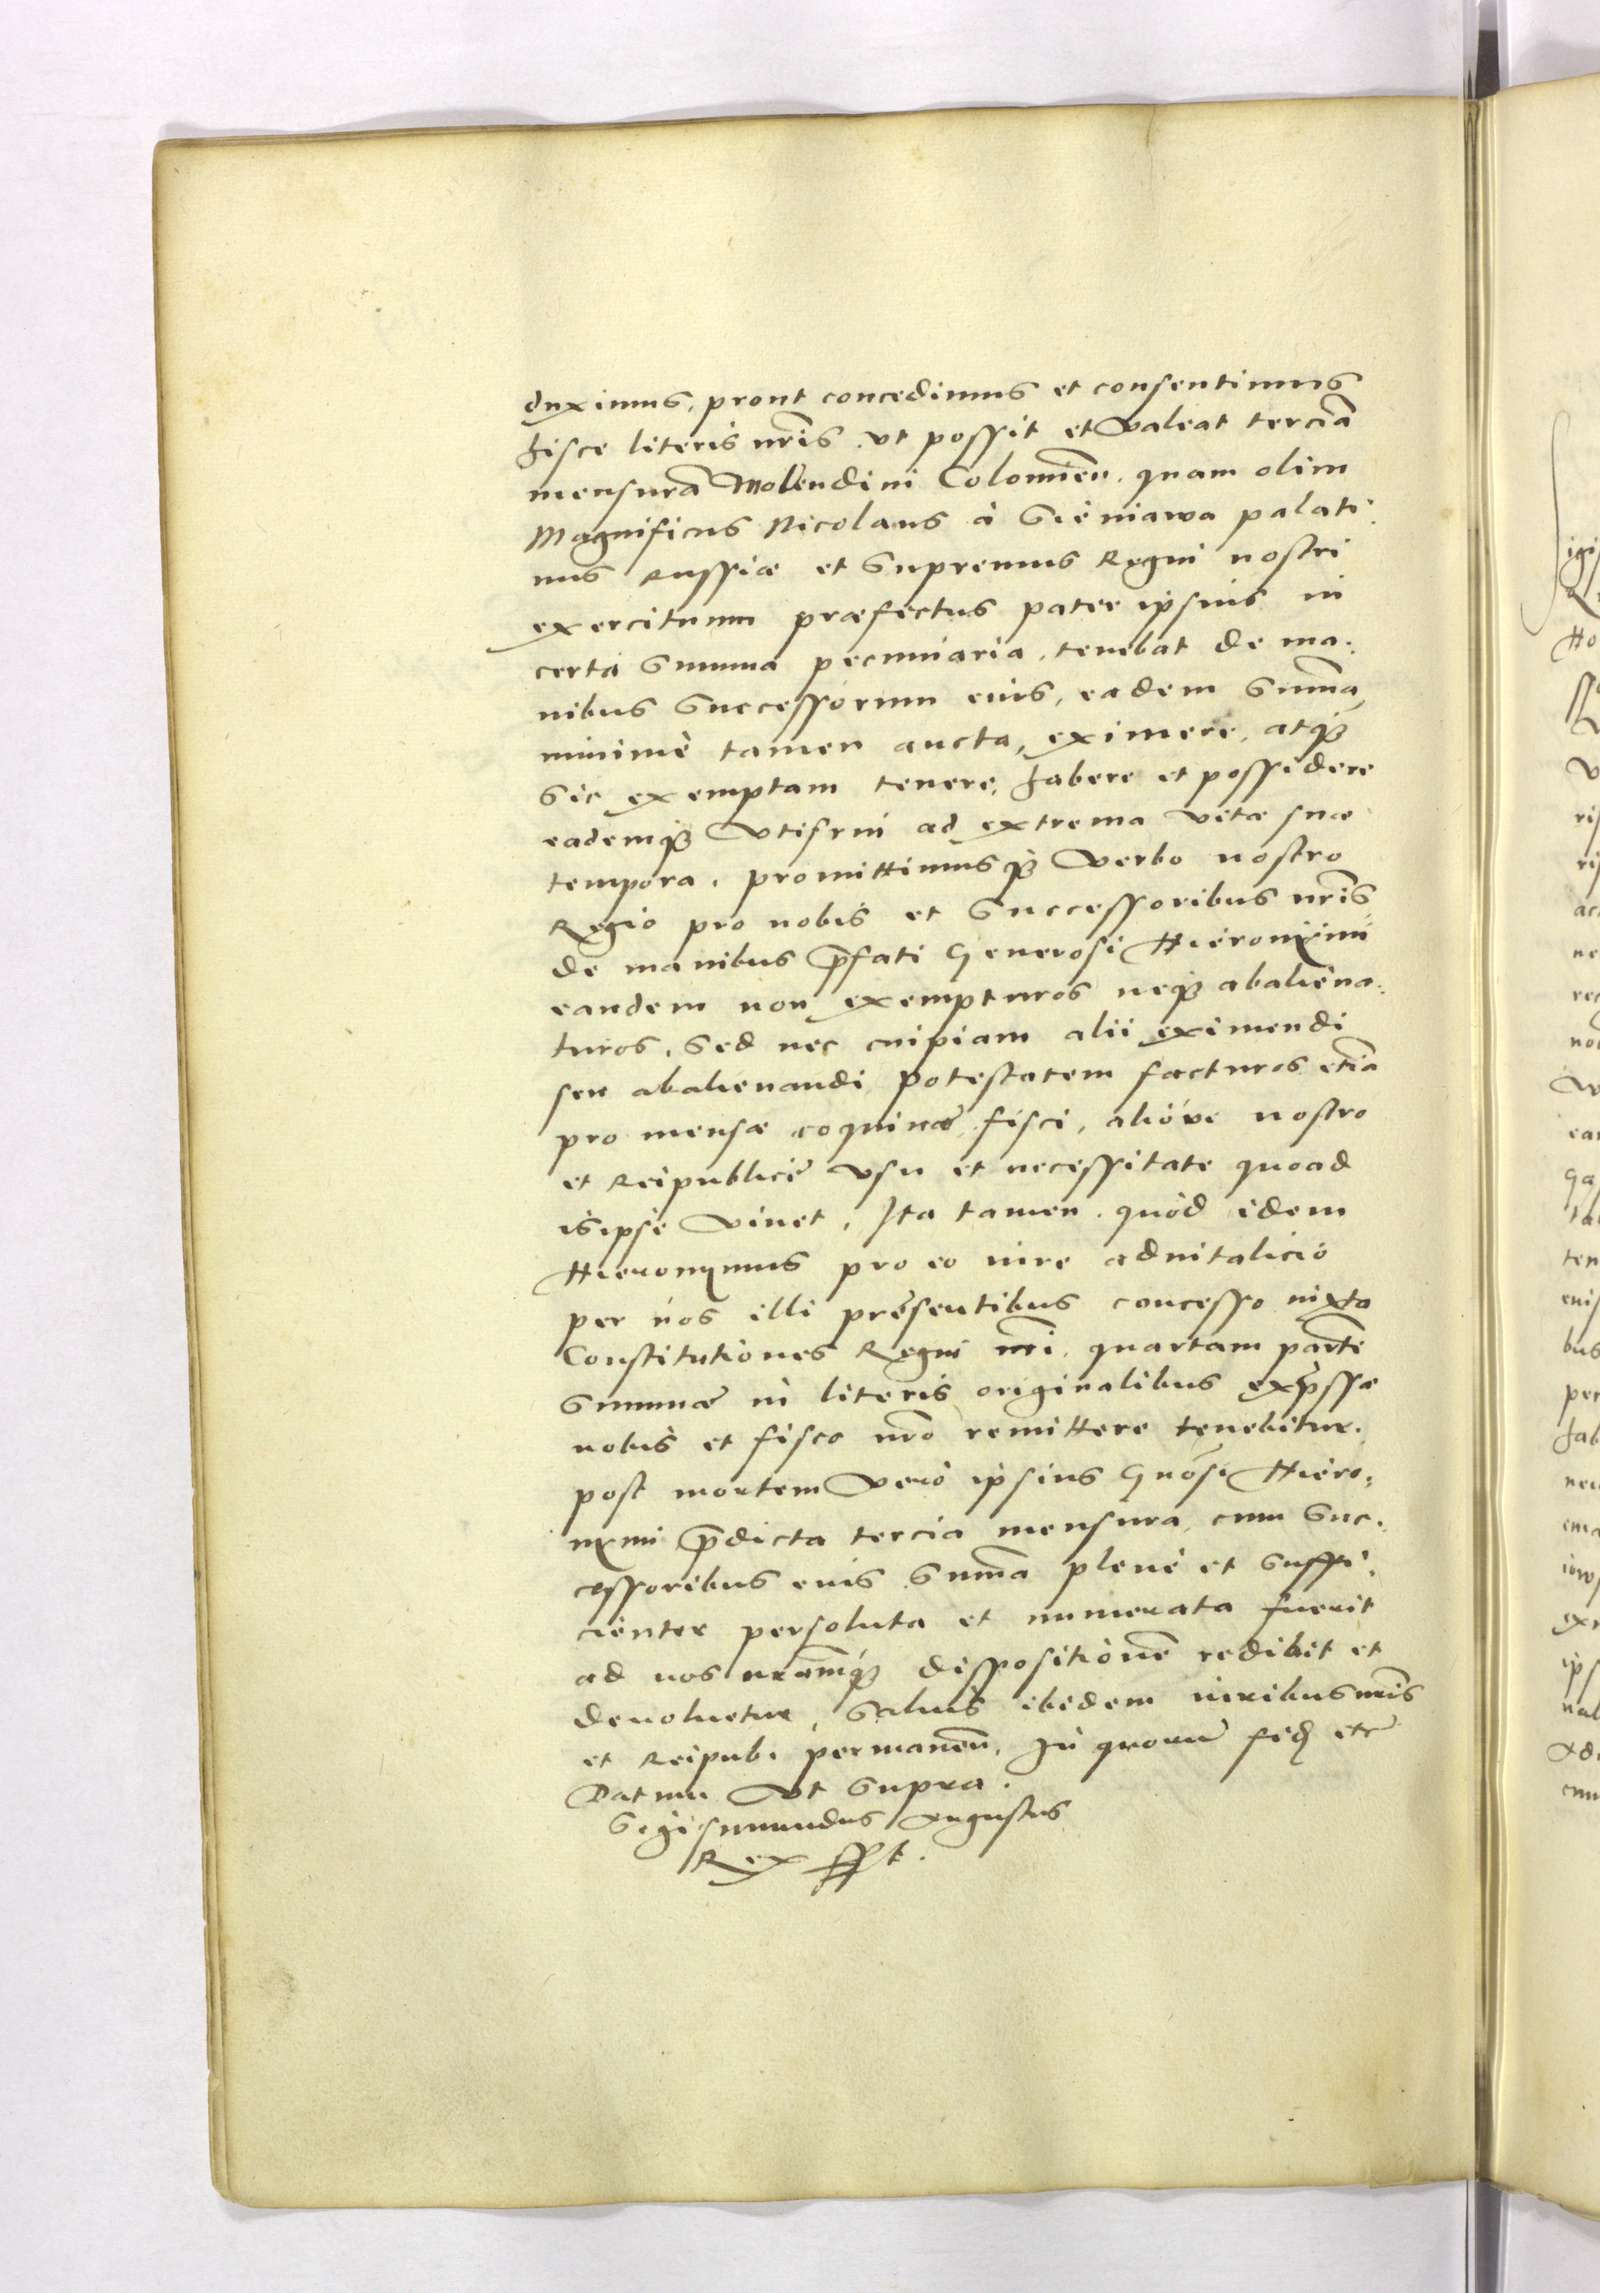 duximus, prout concedimus et consentimus
hisce literis nr̃is. vt possit et valeat terciã
mensurã Molendini Colomień. quam olim
Magnificus Nicolaus à Sieniawa palati-
nus Russiæ et Supremus Regni nostri
exercituum præfectus pater ipsius in
certa Summa pecuniaria, tenebat de ma-
nibus Successorum eius, eadem Sum̃a
minimè tamen aucta, eximere, atq;
Sic exemptam tenere, habere et possidere
eademq; vtifrui ad extrema vitæ suæ
tempora. promittimusq; verbo nostro
Regio pro nobis et Successoribus nr̃is
de manibus p̃fati Generosi Hieronymi
eandem non exempturos neq; abaliena-
turos, Sed nec cuipiam alii eximendi
seu abalienandi potestatem facturos etiã
pro mensæ coquinæ, fisci, alióve nostro
et Reipublicę vsu et necessitate quoad
is ipse vivet, Ita tamen. quòd idem
Hieronymus pro eo iure advitalicio
per nos illi pręsentibus concesso iuxta
Constitutiones Regni nr̃i. quartam partẽ
Summæ in literis originalibus exp̃ssæ
nobis et fisco nr̃o remittere tenebitur.
post mortem verò ipsius Gnõsi Hiero-
nymi p̃dicta tercia mensura, cum Suc-
cessoribus eius Sum̃a plenè et Suffi-
cienter persoluta et numerata fuerit
ad nos nr̃amq; dispositionẽ redibit et
devoluetur, Saluis ibidem iuribus nr̃is
et Reipub. permaneñ. In quorũ fidẽ etc̃
Datum vt Supra.
Sigismundus Augustus
Rex sspt.